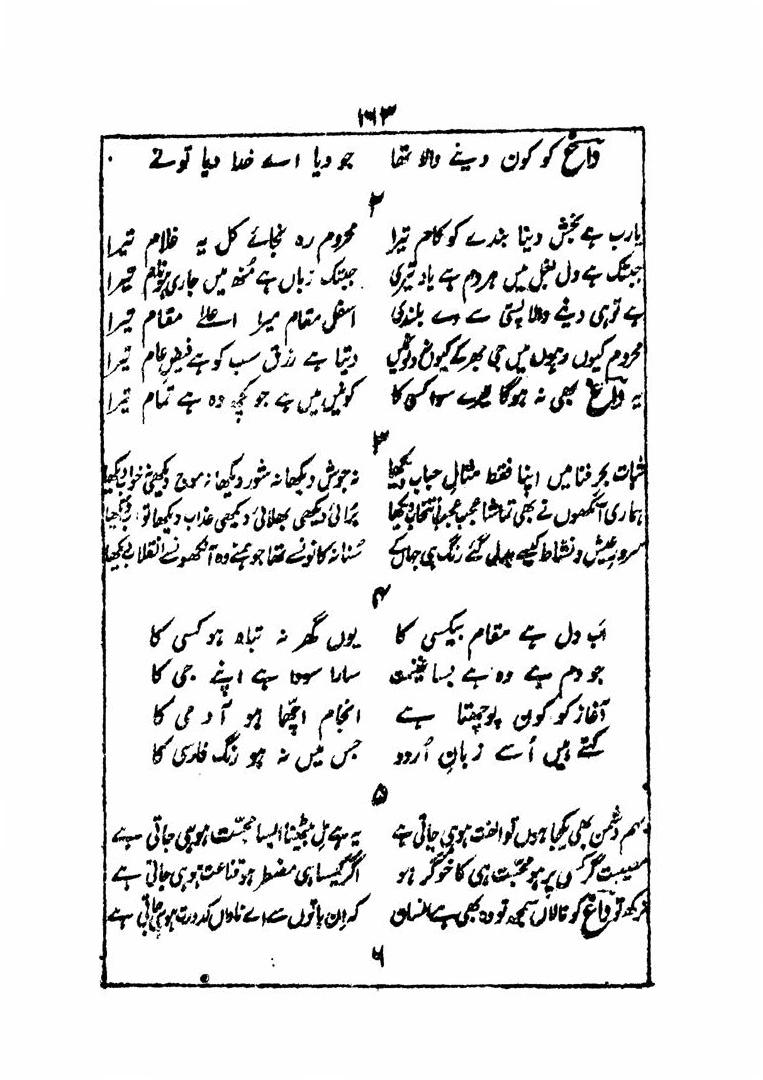 ۱۶۳
داغ کو کون دینے والا تھا جو دیا اے خدا دیا تو نے
۲
یارب ہے بخش دینا بندے کو کام تیرا محروم رہ نجائے کل یہ غلام تیرا
جبتک ہے دل بغل میں ہر دم ہے یاد تیری جبتک زباں ہے منھ میں جاری ہو نام تیرا
ہے توہی دینے والا پستی سے دے بلندی اسفل مقام میرا اعلےٰ مقام تیرا
محروم کیوں رہوں میں جی بھر کے کیوں نہ لوں میں دیتا ہے رزق سب کو ہے فیض عام تیرا
یہ داغ بھی نہ ہوگا تیرے سوا کسی کا کونین میں ہے جو کچھ وہ ہے تمام تیرا
۳
ثبات بحر فنا میں اپنا فقط مثالِ حباب دیکھا نہ جوش دیکھا نہ شور دیکھا نہ موج دیکھی نہ خواب دیکھا
ہماری آنکھوں نے بھی تماشا عجب عجب انتخاب دیکھا برائی دیکھی بھلائی دیکھی عذاب دیکھا ثواب دیکھا
سرور عیش و نشاط کیسے بدل گئے رنگ ہی جہاں کے سُنا نہ کانوں نے تھا جو ہمنے وہ آنکھوں نے انقلاب دیکھا
۴
اب دل ہے مقام بیکسی کا یوں گھر نہ تباہ ہو کسی کا
جو دم ہے وہ ہے بسا غنیمت سارا سودا ہے اپنے جی کا
آغاز کو کون پوچھتا ہے انجام اچھا ہو آدمی کا
کہتے ہیں اُسے زبانِ اُردو جس میں نہ ہو رنگ فارسی کا
۵
بہم دشمن بھی یکجا ہوں تو الفت ہو ہی جاتی ہے یہ ہے مل بیٹھنا ایسا محبّت ہو ہی جاتی ہے
مصیبت گر کسی پر ہو محبّت ہی کا خوگر ہو اگر کیسا ہی مضطر ہو قناعت ہو ہی جاتی ہے
نہ کہہ تو داغ کو نالاں سمجھ تو وہ بھی ہے انسان کہ اِن باتوں سے اے ناداں کدورت ہو ہی جاتی ہے
۶